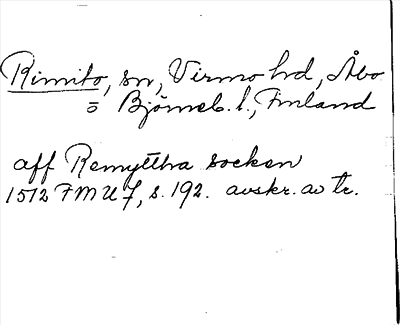 Rimito, sn, Virmo hd, Åbo
o Björneb. l., Finland
aff Remyttha socken
1512 FMU 7, s. 192. avskr. av tr.